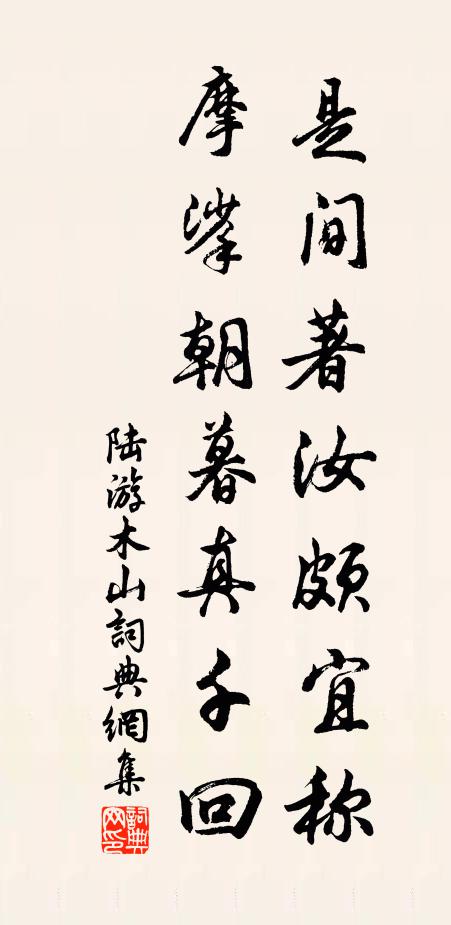 是间著汝颇宜称
摩挲朝暮真千回
陆游木山詞典網集
詞典网印